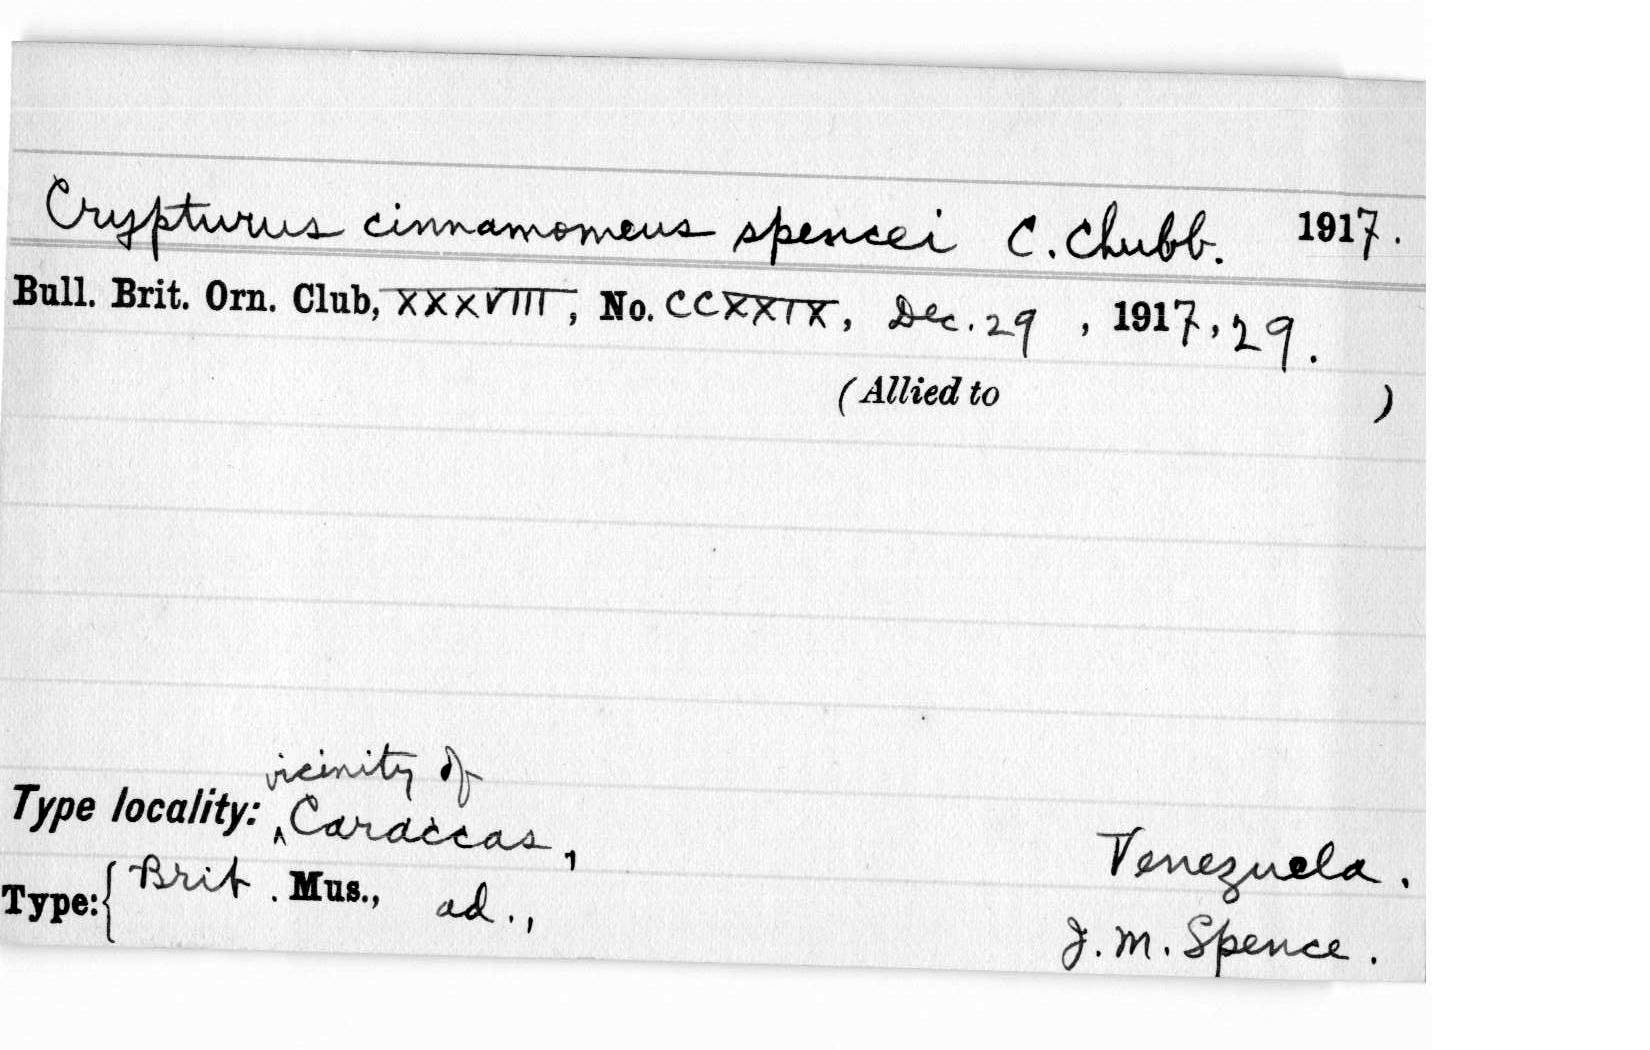 Crypturus cinnamomeus spencei C. Chubb. 1917.
Bull. Brit. Orn. Club, XXXVIII, No. CCXXIX, Dec. 29 , 1917, 29.
(Allied to )
vicinity of
Type locality: ^ Caraccas, Venezuela.
Type: { Brit. Mus., ad., J. M. Spence.